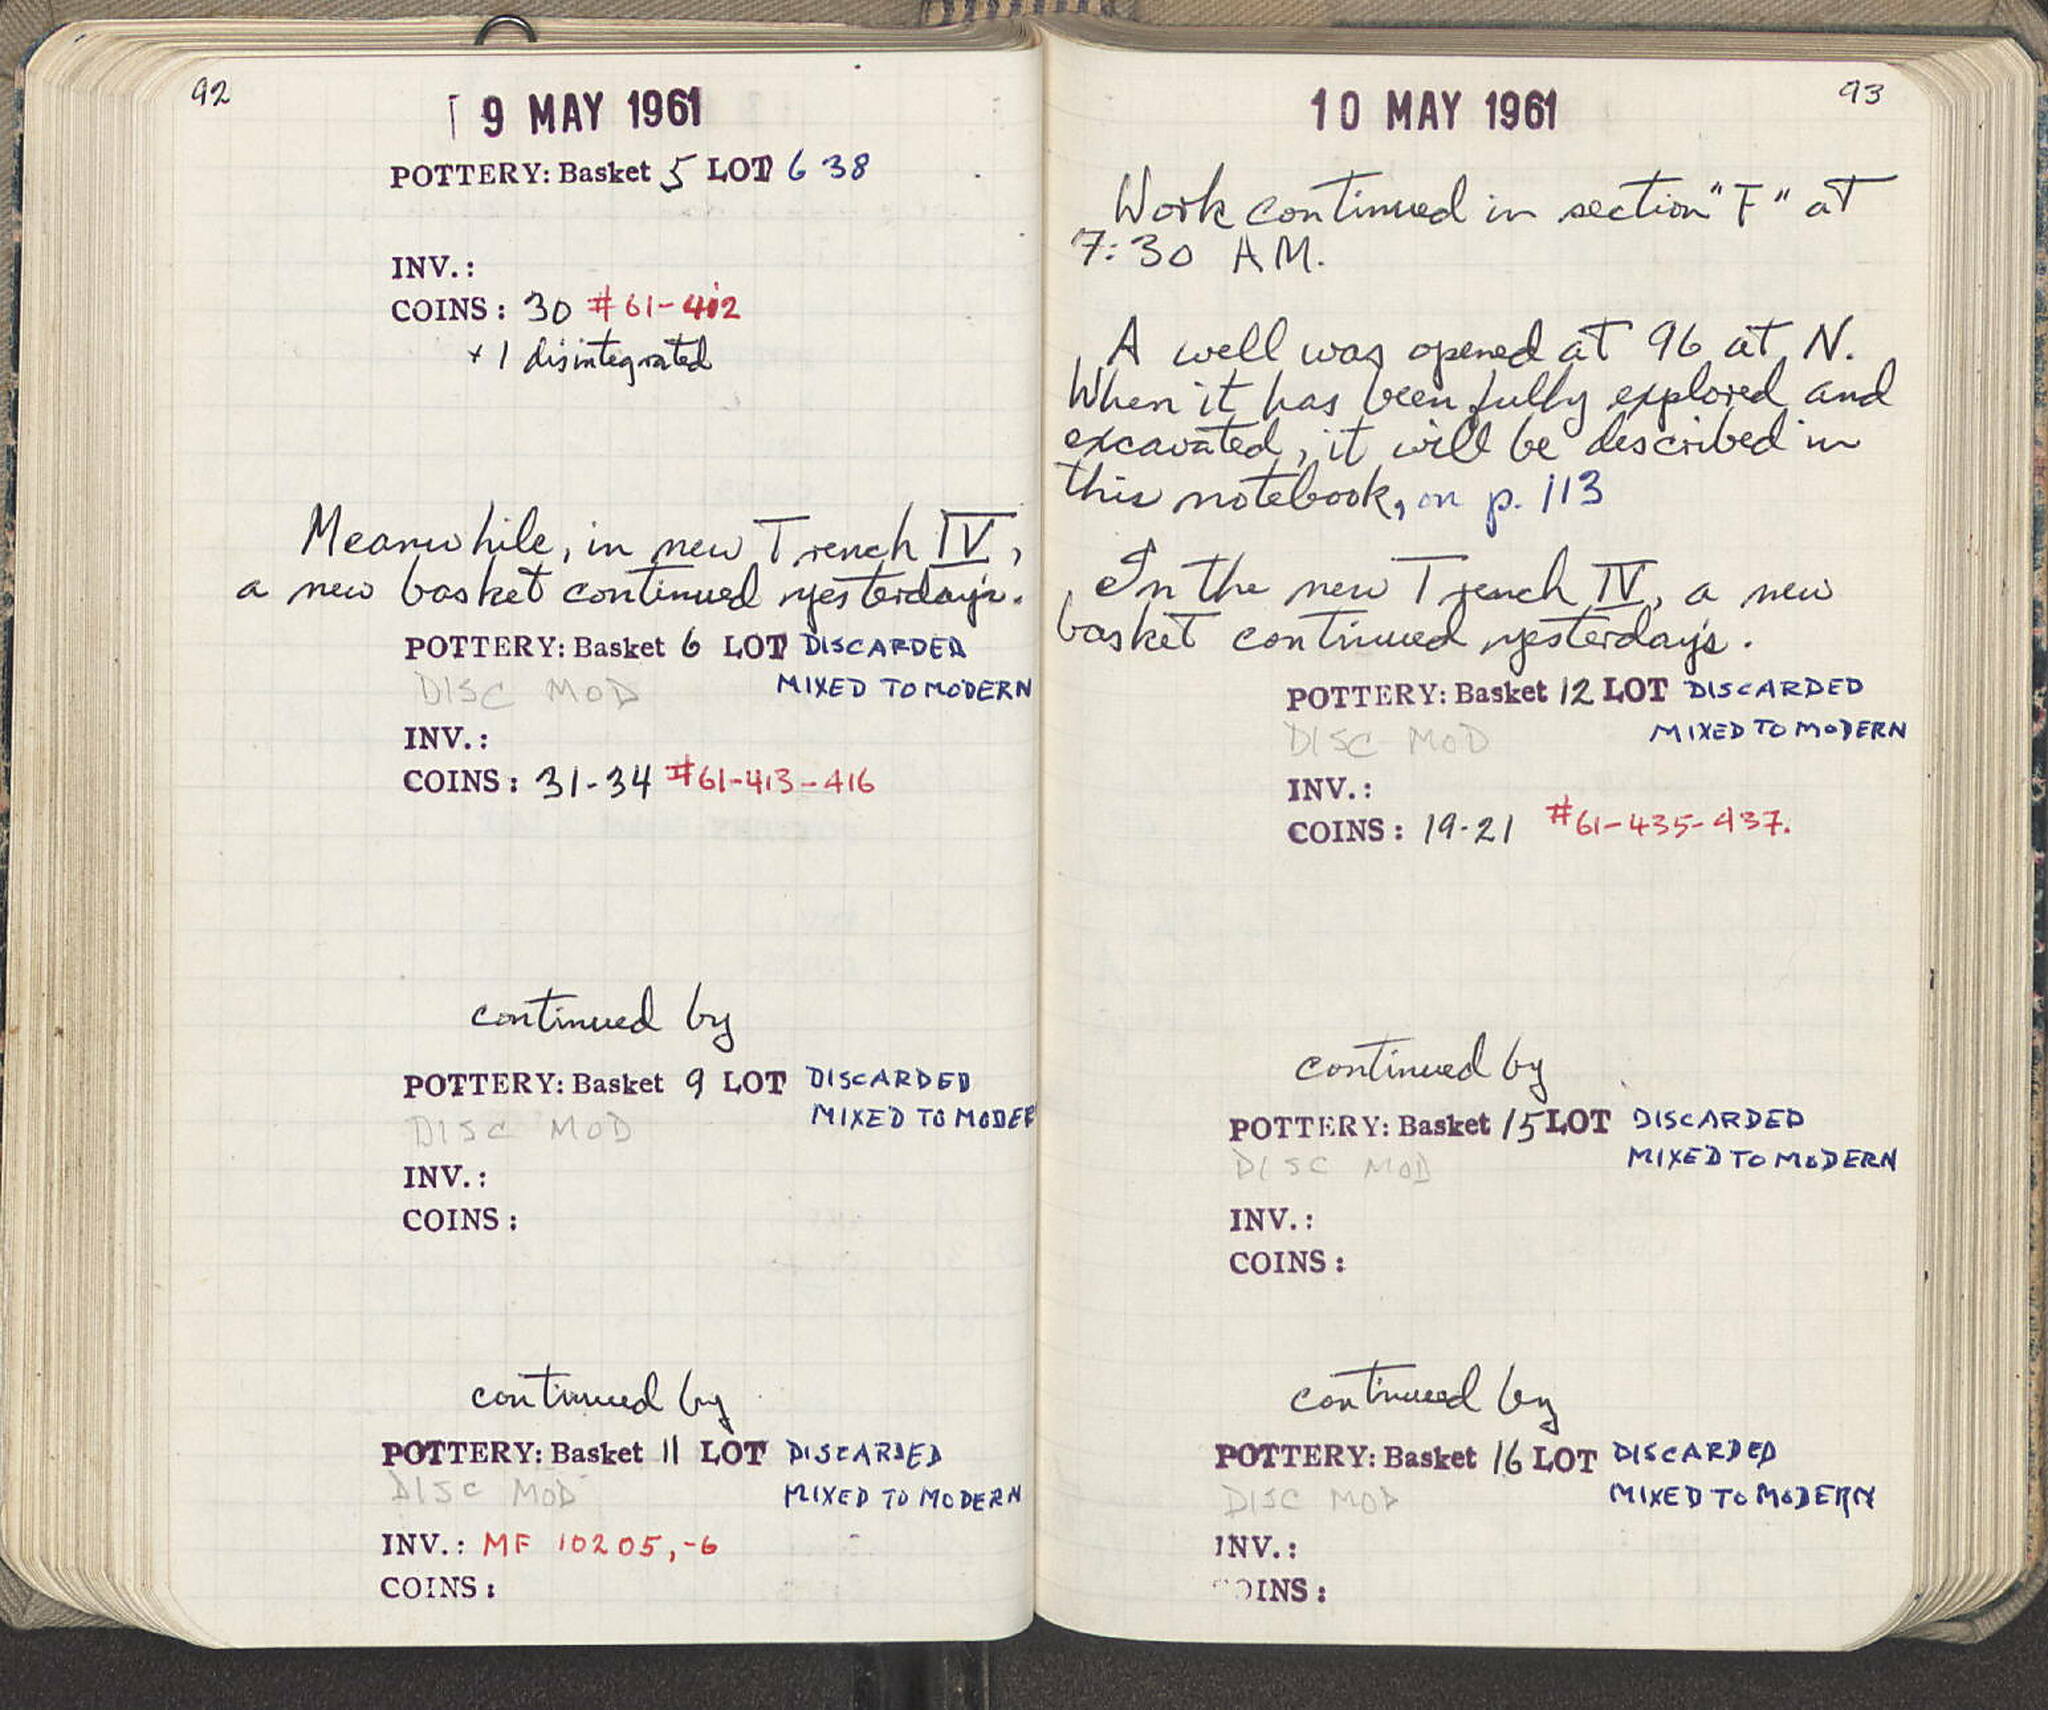 92
9 MAY 1961
POTTERY: Basket 5 LOT 638
INV.:
COINS: 30 #61-412
+ 1 disintegrated
Meanwhile, in new Trench IV,
a new basket continued yesterday's.
POTTERY: Basket 6 LOT DISCARDED
DISC MOD MIXED TO MODERN
INV.:
COINS: 31-34 #61-413-416
continued by
POTTERY: Basket 9 LOT DISCARDED
DISC MOD MIXED TO MODER
INV.:
COINS:
continued by
POTTERY: Basket 11 LOT DISCARDED
DISC MOD MIXED TO MODERN
INV.: MF 10205,-6
COINS:
93
10 MAY 1961
Work continued in section "F" at
7:30 AM.
A well was opened at 96 at N.
When it has been fully explored and
excavated, it will be described in
this notebook, on p. 113
In the new Trench IV, a new
basket continued yesterday's.
POTTERY: Basket 12 LOT DISCARDED
DISC MOD MIXED TO MODERN
INV.:
COINS: 19-21 #61-435-437.
continued by
POTTERY: Basket 15 LOT DISCARDED
DISC MOD MIXED TO MODERN
INV.:
COINS:
continued by
POTTERY: Basket 16 LOT DISCARDED
DISC MOD MIXED TO MODERN
INV.:
COINS: